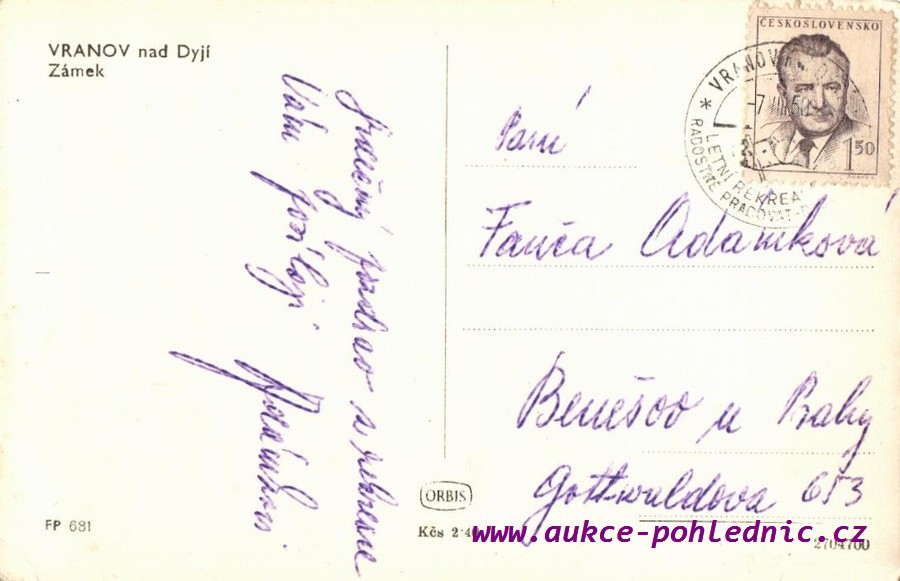 VRANOV nad Dyjí
Zámek
Srdečný pozdrav z rekreace
Vám posílají
ČESKOSLOVENSKO
1.50
* VRANOV
-7.VIII.50
LETNÍ REKREA
RADOSTNĚ PRACOVAT
Paní
Fanča Adamková
Benešov u Prahy
Gottwaldova 653
ORBIS
FP 681
Kčs 2·40
www.aukce-pohlednic.cz
2704700